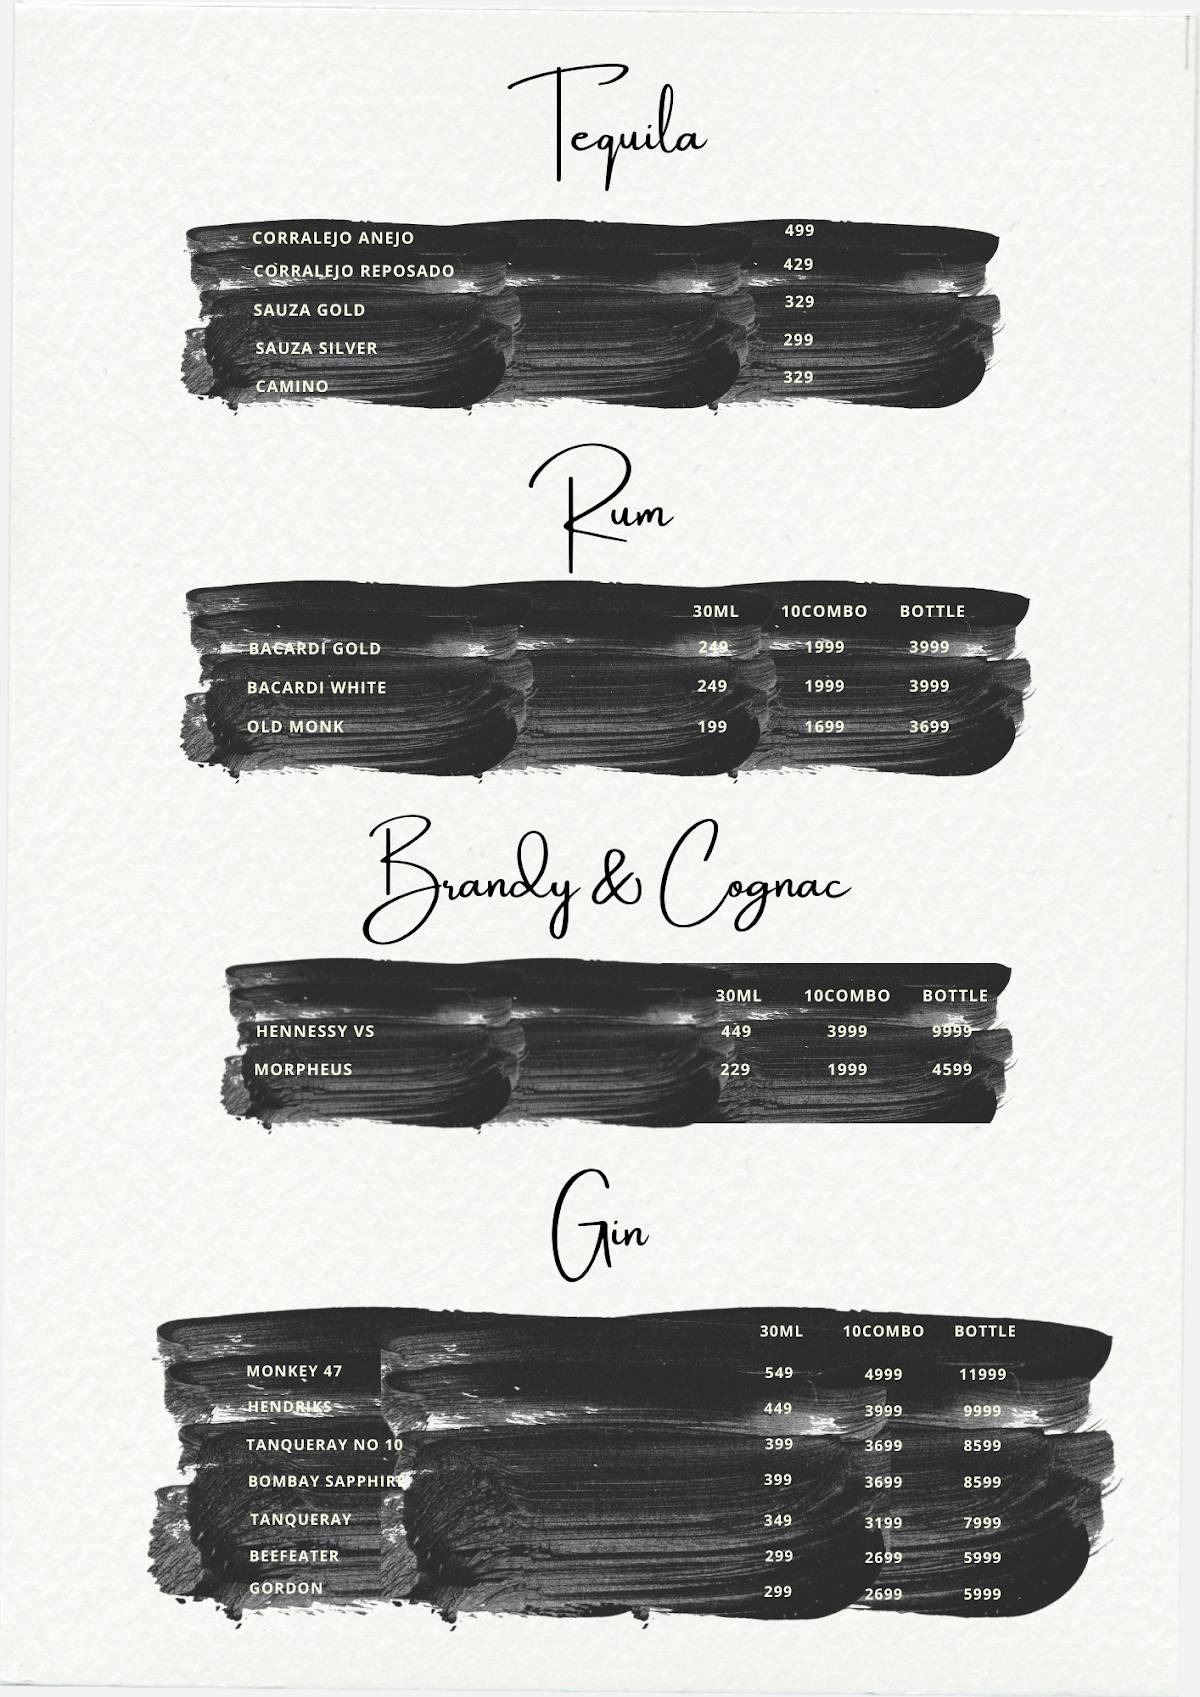 Tequila
CORRALEJO ANEJO 499
CORRALEJO REPOSADO 429
SAUZA GOLD 329
SAUZA SILVER 299
CAMINO 329
Rum
30ML 10COMBO BOTTLE
BACARDI GOLD 249 1999 3999
BACARDI WHITE 249 1999 3999
OLD MONK 199 1699 3699
Brandy & Cognac
30ML 10COMBO BOTTLE
HENNESSY VS 449 3999 9999
MORPHEUS 229 1999 4599
Gin
30ML 10COMBO BOTTLE
MONKEY 47 549 4999 11999
HENDRIKS 449 3999 9999
TANQUERAY NO 10 399 3699 8599
BOMBAY SAPPHIRE 399 3699 8599
TANQUERAY 349 3199 7999
BEEFEATER 299 2699 5999
GORDON 299 2699 5999